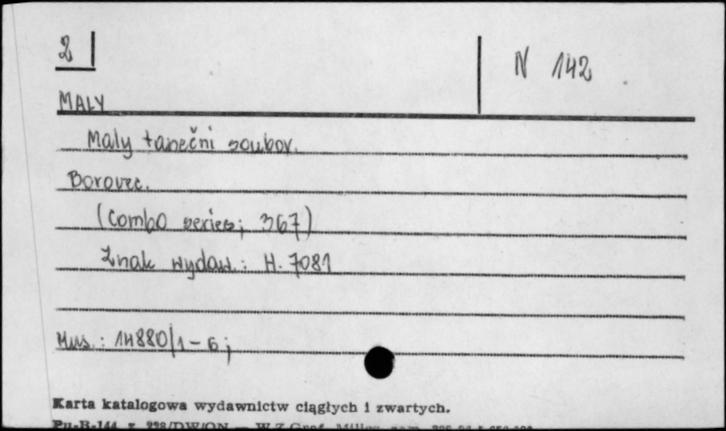 2 N 142
MALY
Maly taneční soubor.
Borovec.
(Combo series; 367)
Znak wydaw.: H. 7081
Mus.: 14880/1-6;
Karta katalogowa wydawnictw ciągłych i zwartych.
Pu-B-144 z. 228/DW/ON — W.Z.Graf.